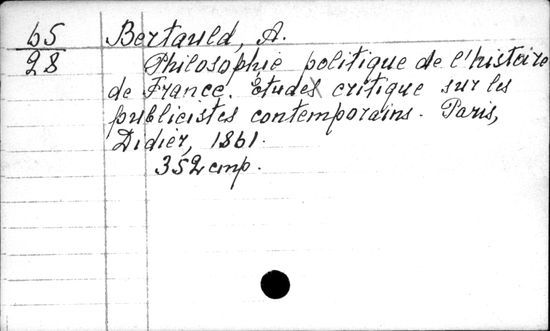 65 Bertauld, A.
28 Philosophie politique de l'histoire
de France. Étude critique sur les
publicistes contemporains. Paris,
Didier, 1861.
352 стр.